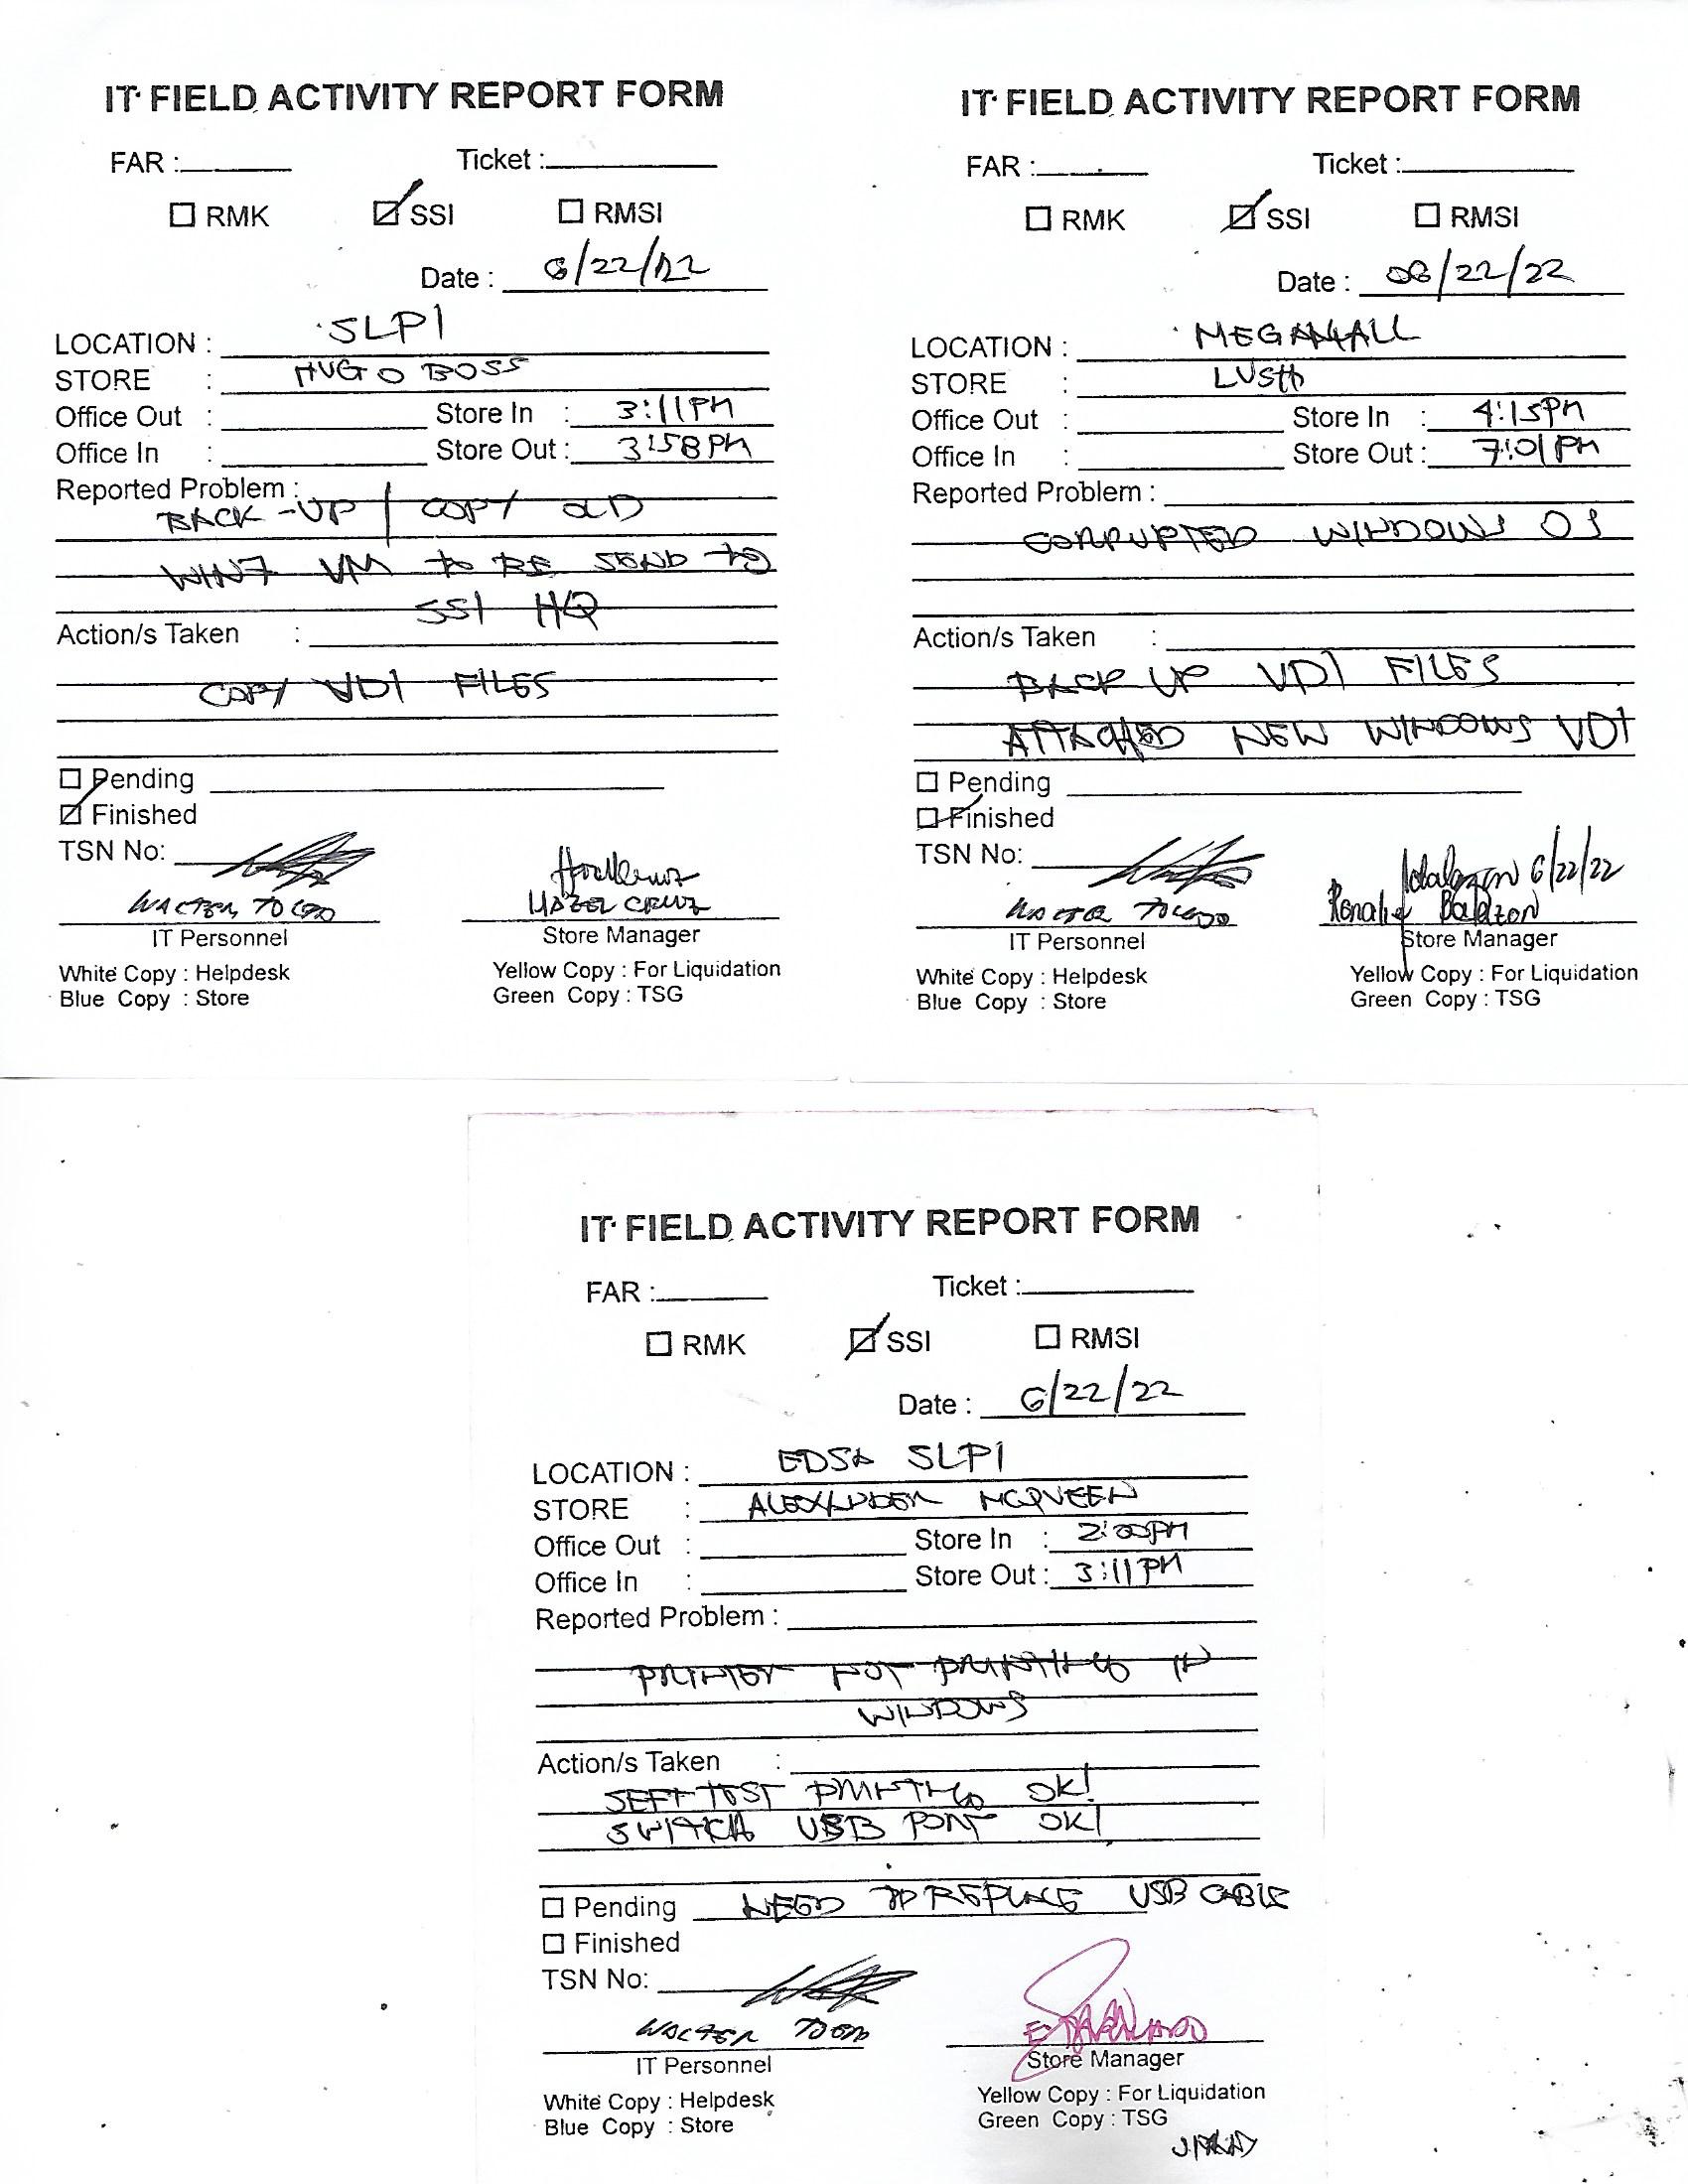 IT FIELD ACTIVITY REPORT FORM
FAR : Ticket :
RMK SSI RMSI
Date : 6/22/22
LOCATION : SLPI
STORE : HUGO BOSS
Office Out : Store In : 3:11PM
Office In : Store Out : 3:58PM
Reported Problem :
BACK-UP / COPY OLD
WIN7 VM TO BE SEND TO
SSI HQ
Action/s Taken :
COPY VDI FILES
Pending
Finished
TSN No:
WALTER TOLEDO HAZEL CRUZ
IT Personnel Store Manager
White Copy : Helpdesk Yellow Copy : For Liquidation
Blue Copy : Store Green Copy : TSG
IT FIELD ACTIVITY REPORT FORM
FAR : Ticket :
RMK SSI RMSI
Date : 06/22/22
LOCATION : MEGAMALL
STORE : LUSH
Office Out : Store In : 4:15PM
Office In : Store Out : 7:01PM
Reported Problem :
CORRUPTED WINDOWS OS
Action/s Taken :
BACK UP VDI FILES
ATTACHED NEW WINDOWS VDI
Pending
Finished
TSN No: 6/22/22
WALTER TOLEDO Ronalie
IT Personnel Store Manager
White Copy : Helpdesk Yellow Copy : For Liquidation
Blue Copy : Store Green Copy : TSG
IT FIELD ACTIVITY REPORT FORM
FAR : Ticket :
RMK SSI RMSI
Date : 6/22/22
LOCATION : EDSA SLPI
STORE : ALEXANDER MCQVEEN
Office Out : Store In : 2:00PM
Office In : Store Out : 3:11PM
Reported Problem :
PRINTER NOT PRINTING IN
WINDOWS
Action/s Taken :
SELF TEST PRINTING OK!
SWITCH USB PORT OK!
Pending NEED TO REPLACE USB CABLE
Finished
TSN No:
WALTER TOLEDO
IT Personnel Store Manager
White Copy : Helpdesk Yellow Copy : For Liquidation
Blue Copy : Store Green Copy : TSG